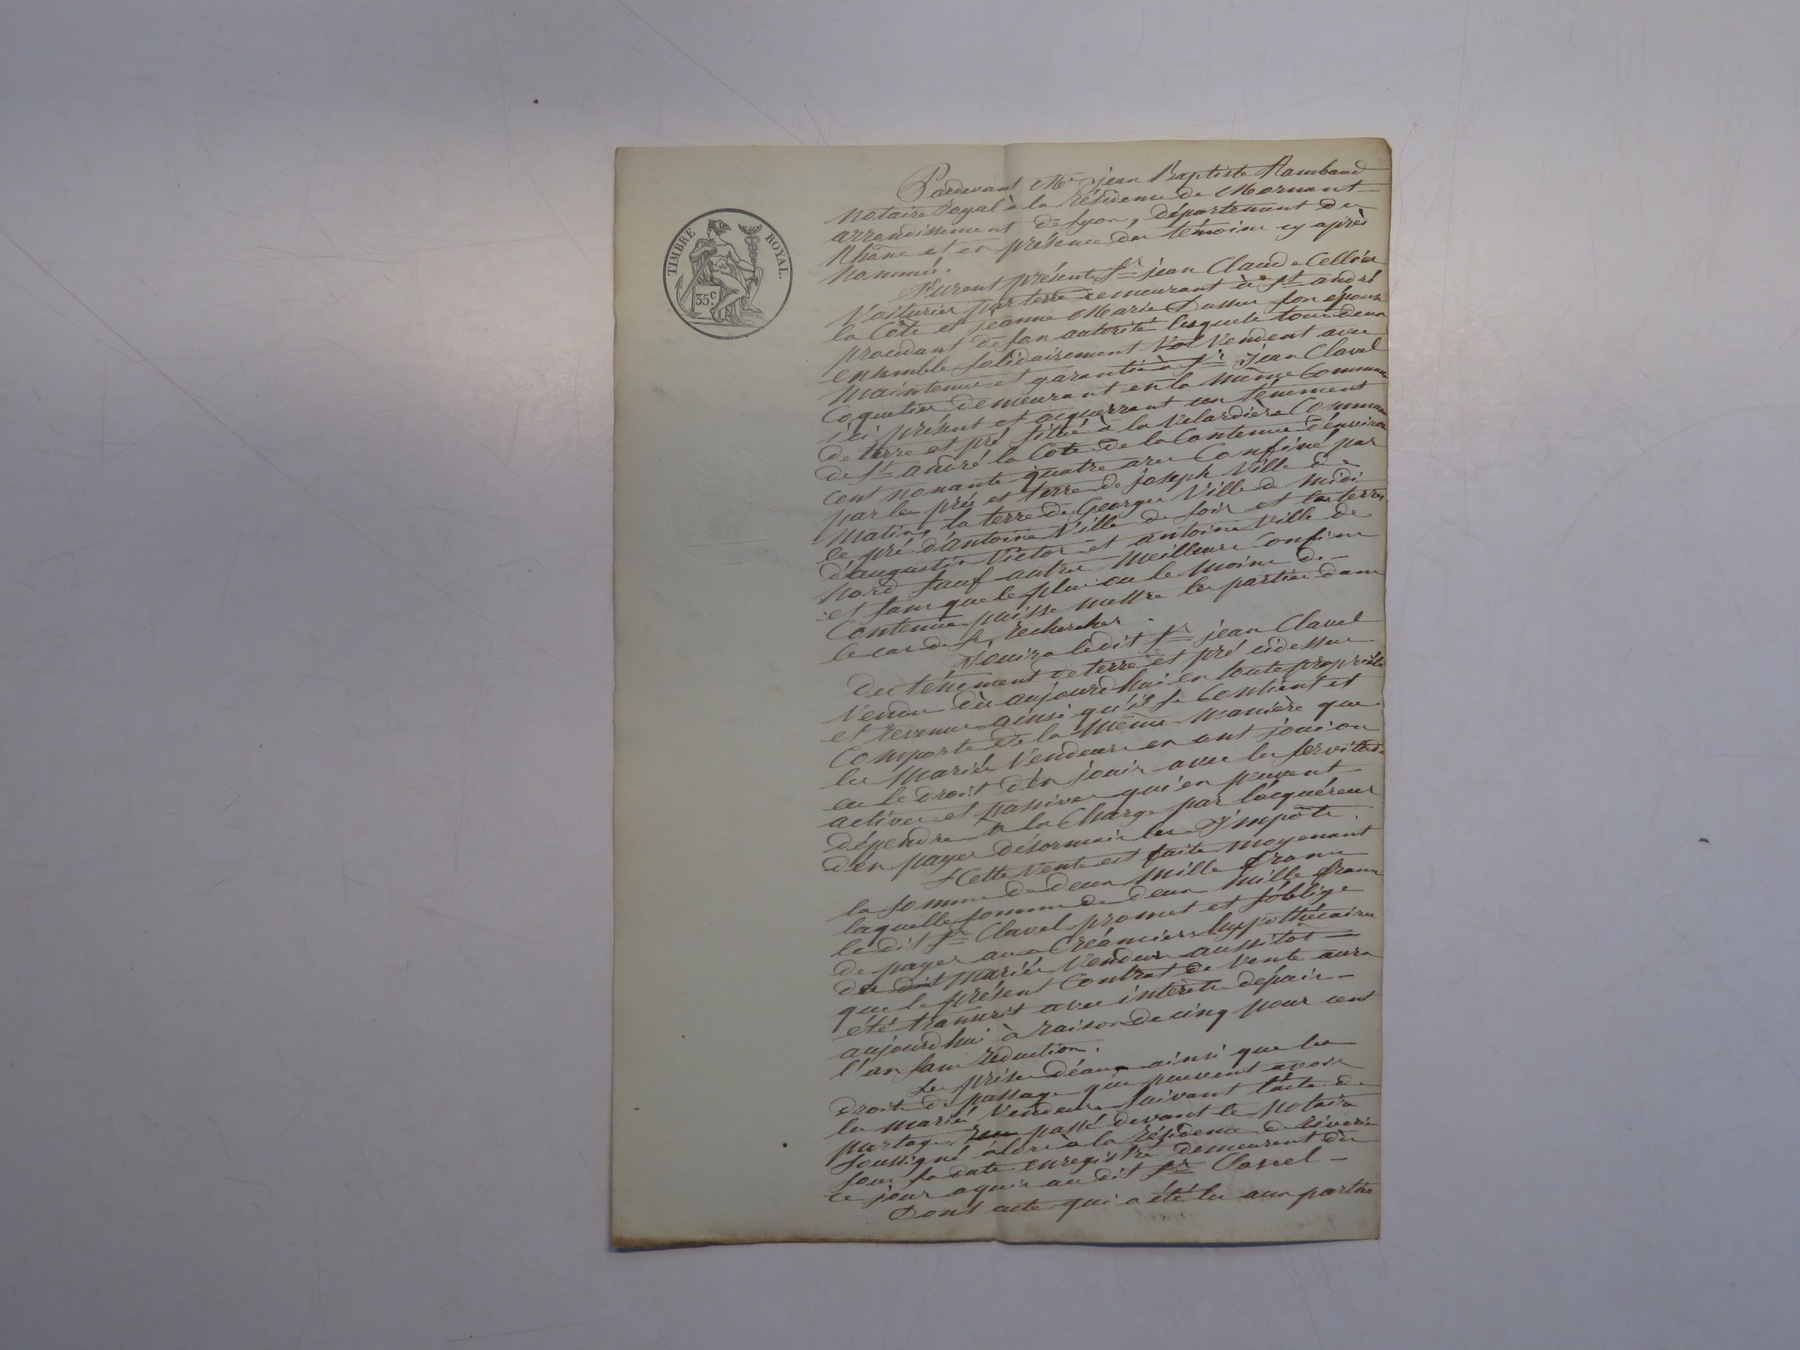 TIMBRE ROYAL.
35 c
Pardevant Me jean Baptiste Rambaud
notaire Royal à la Résidence de Mornant
arrondissement de Lyon, département du
Rhône et en présence des témoins cy après
nommés.
Furent présents Sr jean Claude Cellier
Voiturier par terre demeurant à St andré
la Côte et jeanne Marie son épouse
procédant de son autorité lesquels tous deux
ensemble solidairement Vendent avec
maintenue et garantie à Sr jean Clavel
Coquetier demeurant en la même Commune
ici présent et acquerrant un tènement
de terre et pré situé à la Velardière Commune
de St andré la Côte de la Contenue d'environ
cent nonante quatre ares Confiné par
par les prés et terre de joseph Ville de
matin, la terre de George Ville de midi
le pré d'antoine Ville de soir et les terres
d'augustin Victor et antoine Ville de
nord sauf autres meilleurs Confins
et sans que le plus ou le moins de
Contenue puisse mettre les parties dans
le cas de se rechercher.
jouira ledit Sr jean Clavel
du tènement de terre et pré cidessus
Vendu dès aujourdhui en toute propriété
et revenu ainsi qu'il se Contient et
Comporte de la même manière que
les mariés Vendeurs en ont joui ou
eu le droit d'en jouir avec les servitudes
actives et passives qui en peuvent
dépendre à la Charge par l'acquéreur
d'en payer désormais les Impôts
Cette Vente est faite moyennant
la somme de deux mille francs
laquelle somme de deux mille francs
le dit Sr Clavel promet et s'oblige
de payer aux Créanciers hypothécaires
des dits mariés Vendeurs aussitot
que le présent Contrat de Vente aura
été transcrit avec intérêts depuis
aujourdhui à raison de cinq pour cent
l'an sans réduction.
Les prises d'eaux ainsi que les
droits de passage que peuvent avoir
les mariés Vendeurs suivant l'acte de
partage passé devant le notaire
soussigné alors à la résidence de riverie
sous sa date enregistré demeurent dès
ce jour aquis au dit Sr Clavel
Dont acte qui a été lu aux parties